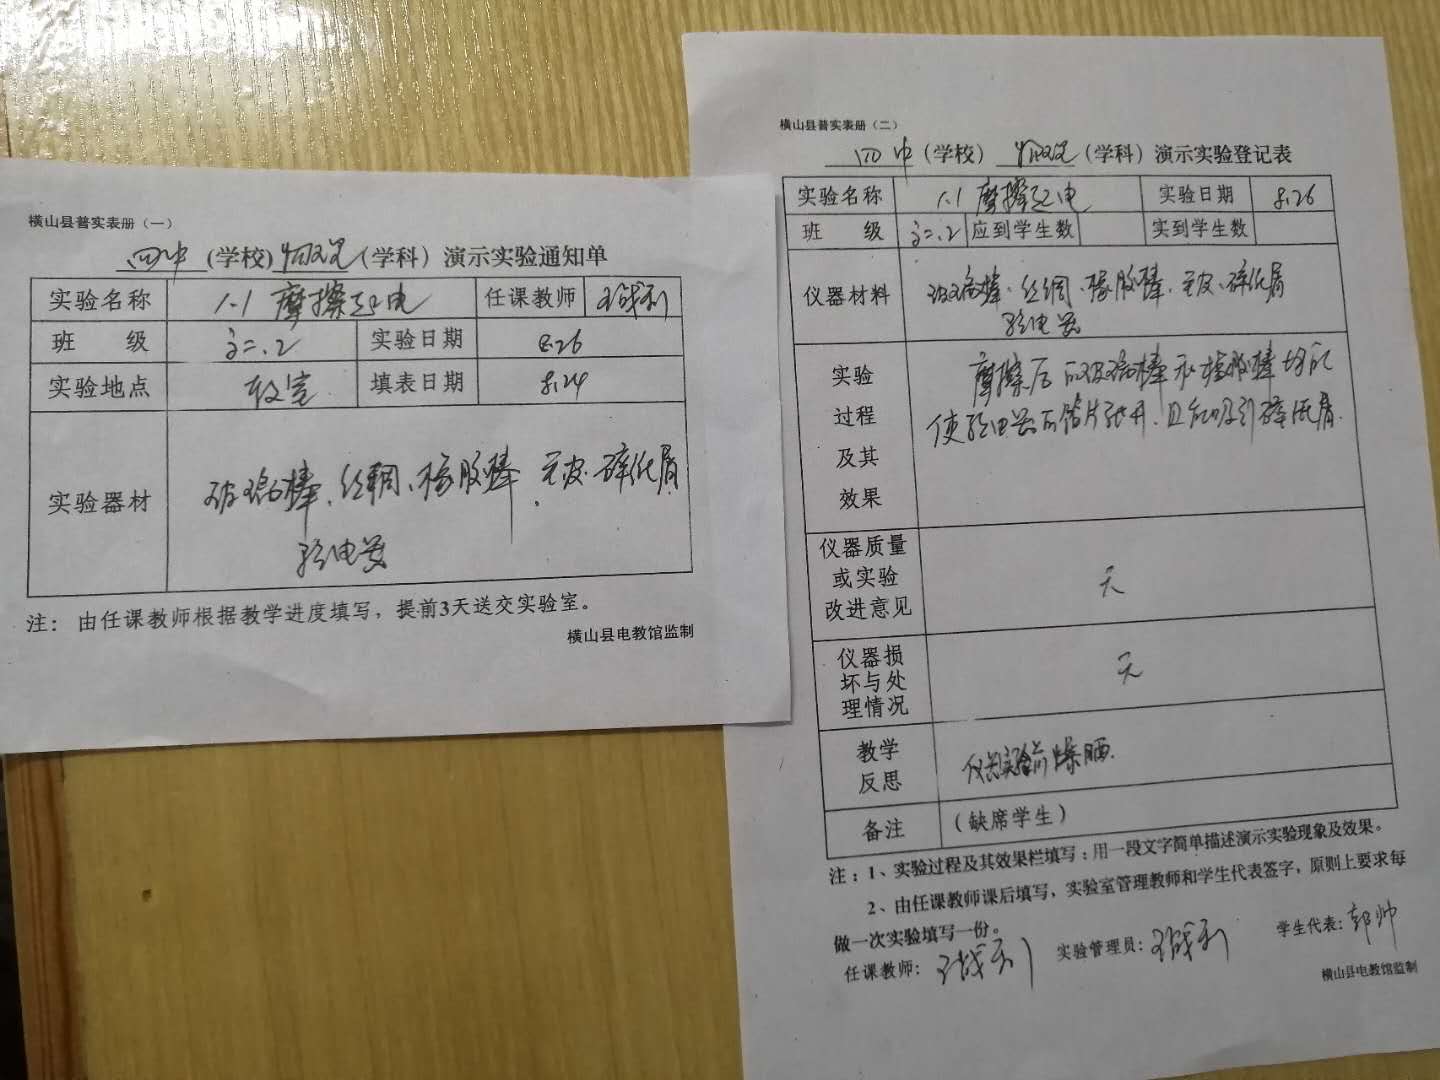 横山县普实表册（一）
四中（学校）物理（学科）演示实验通知单
实验名称 1.1 摩擦起电 任课教师
班 级 高二.2 实验日期 8.26
实验地点 教室 填表日期 8.24
实验器材 玻璃棒、丝绸、橡胶棒、毛皮、碎纸屑
验电器
注： 由任课教师根据教学进度填写，提前3天送交实验室。
横山县电教馆监制
横山县普实表册（二）
四中（学校） 物理（学科）演示实验登记表
实验名称 1.1 摩擦起电 实验日期 8.26
班 级 高二.2 应到学生数 实到学生数
仪器材料 玻璃棒、丝绸、橡胶棒、毛皮、碎纸屑
验电器
实验过程及其效果 摩擦后的玻璃棒和橡胶棒均能
使验电器的箔片张开，且能吸引碎纸屑。
仪器质量或实验改进意见 无
仪器损坏与处理情况 无
教学反思 仪器实验前 晒.
备注 （缺席学生）
注：1、实验过程及其效果栏填写：用一段文字简单描述演示实验现象及效果。
2、由任课教师课后填写，实验室管理教师和学生代表签字，原则上要求每
做一次实验填写一份。
任课教师： 实验管理员： 学生代表：郭帅
横山县电教馆监制